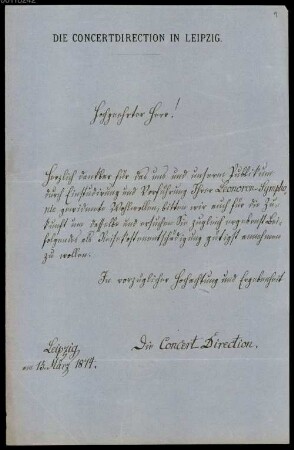 DIE CONCERTDIRECTION IN LEIPZIG.
Hochgeehrter Herr!
Herzlich dankbar für das uns und unserm Publikum
durch Einstudirung und Vorführung Ihrer Leonoren-Sympho-
nie gewidmete Wohlwollen, bitten wir auch für die Zu-
kunft um dasselbe und ersuchen Sie zugleich ergebenst Bei-
folgendes als Reisekostenentschädigung gütigst annehmen
zu wollen.
In vorzüglicher Hochachtung und Ergebenheit
Leipzig,
am 13. März 1874.
Die Concert Direction.